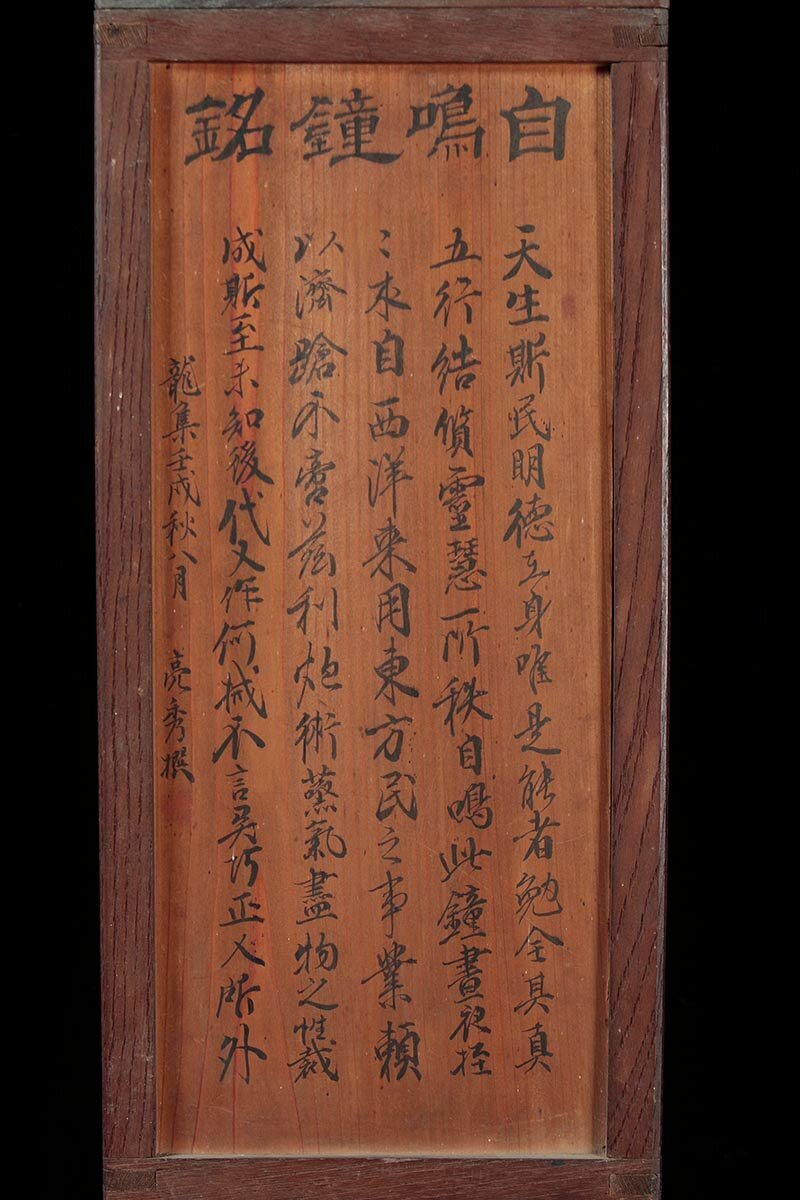 自鳴鐘銘
天生斯民明德立身唯是能者勉全其真
五行結質靈慧所秩自鳴此鐘晝夜
〻本自西洋来用東方民之事業頼
以濟蹌不啻茲利炮術蒸氣盡物之性裁
成斯至未知後代又作何械不言異巧正人所外
龍集壬戌秋八月 亮秀撰